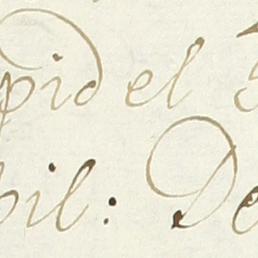 pido el
bil: De